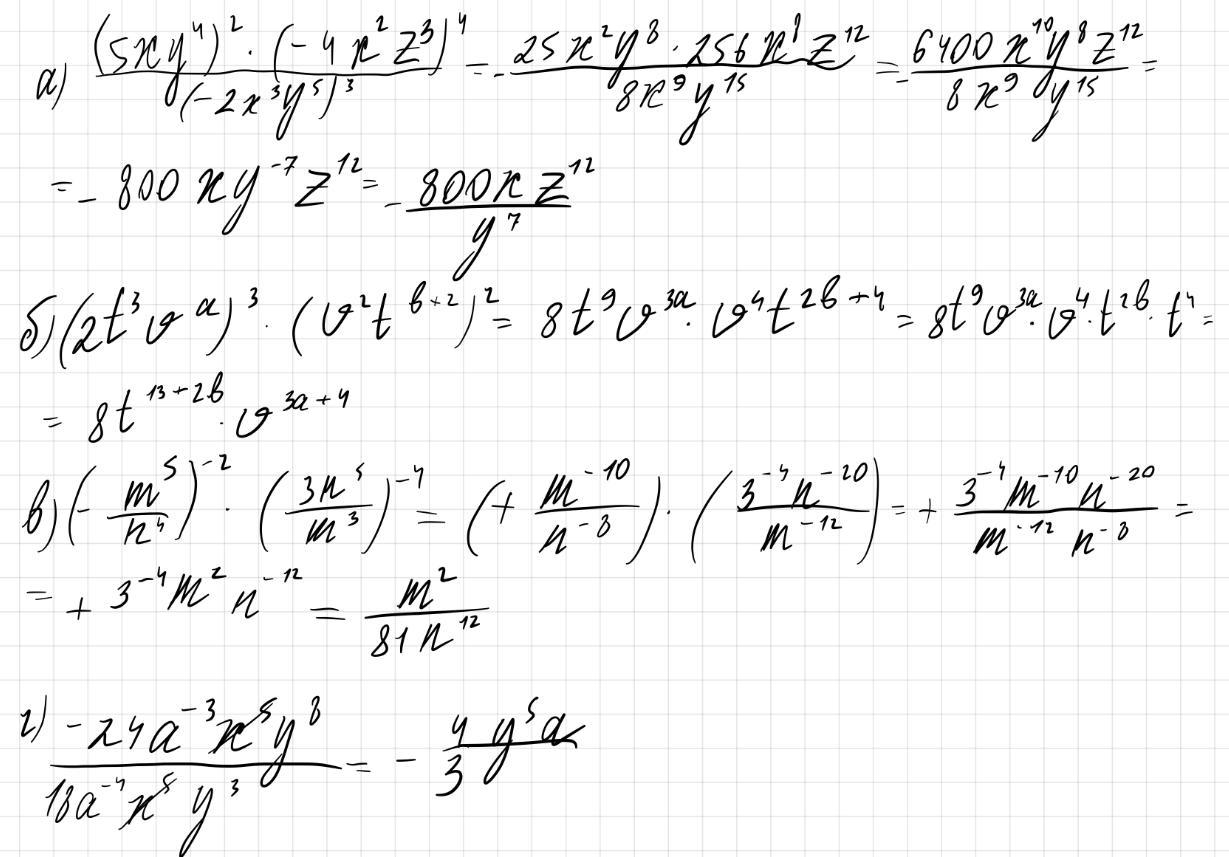 а) (5xy⁴)² · (-4x²z³)⁴ / (-2x³y⁵)³ = - 25x²y⁸ · 256x⁸z¹² / 8x⁹y¹⁵ = - 6400x¹⁰y⁸z¹² / 8x⁹y¹⁵ =
= - 800xy⁻⁷z¹² = - 800xz¹² / y⁷
б) (2t³vᵃ)³ · (v²t^(b+2))² = 8t⁹v^(3a) · v⁴t^(2b+4) = 8t⁹v^(3a) · v⁴ · t^(2b) · t⁴ =
= 8t^(13+2b) · v^(3a+4)
в) (- m⁵/n⁴)⁻² · (3n⁵/m³)⁻⁴ = (+ m⁻¹⁰/n⁻⁸) · (3⁻⁴n⁻²⁰/m⁻¹²) = + 3⁻⁴m⁻¹⁰n⁻²⁰ / m⁻¹²n⁻⁸ =
= + 3⁻⁴m²n⁻¹² = m² / 81n¹²
г) -24a⁻³x⁵y⁸ / 18a⁻⁴x⁵y³ = - 4/3 y⁵a